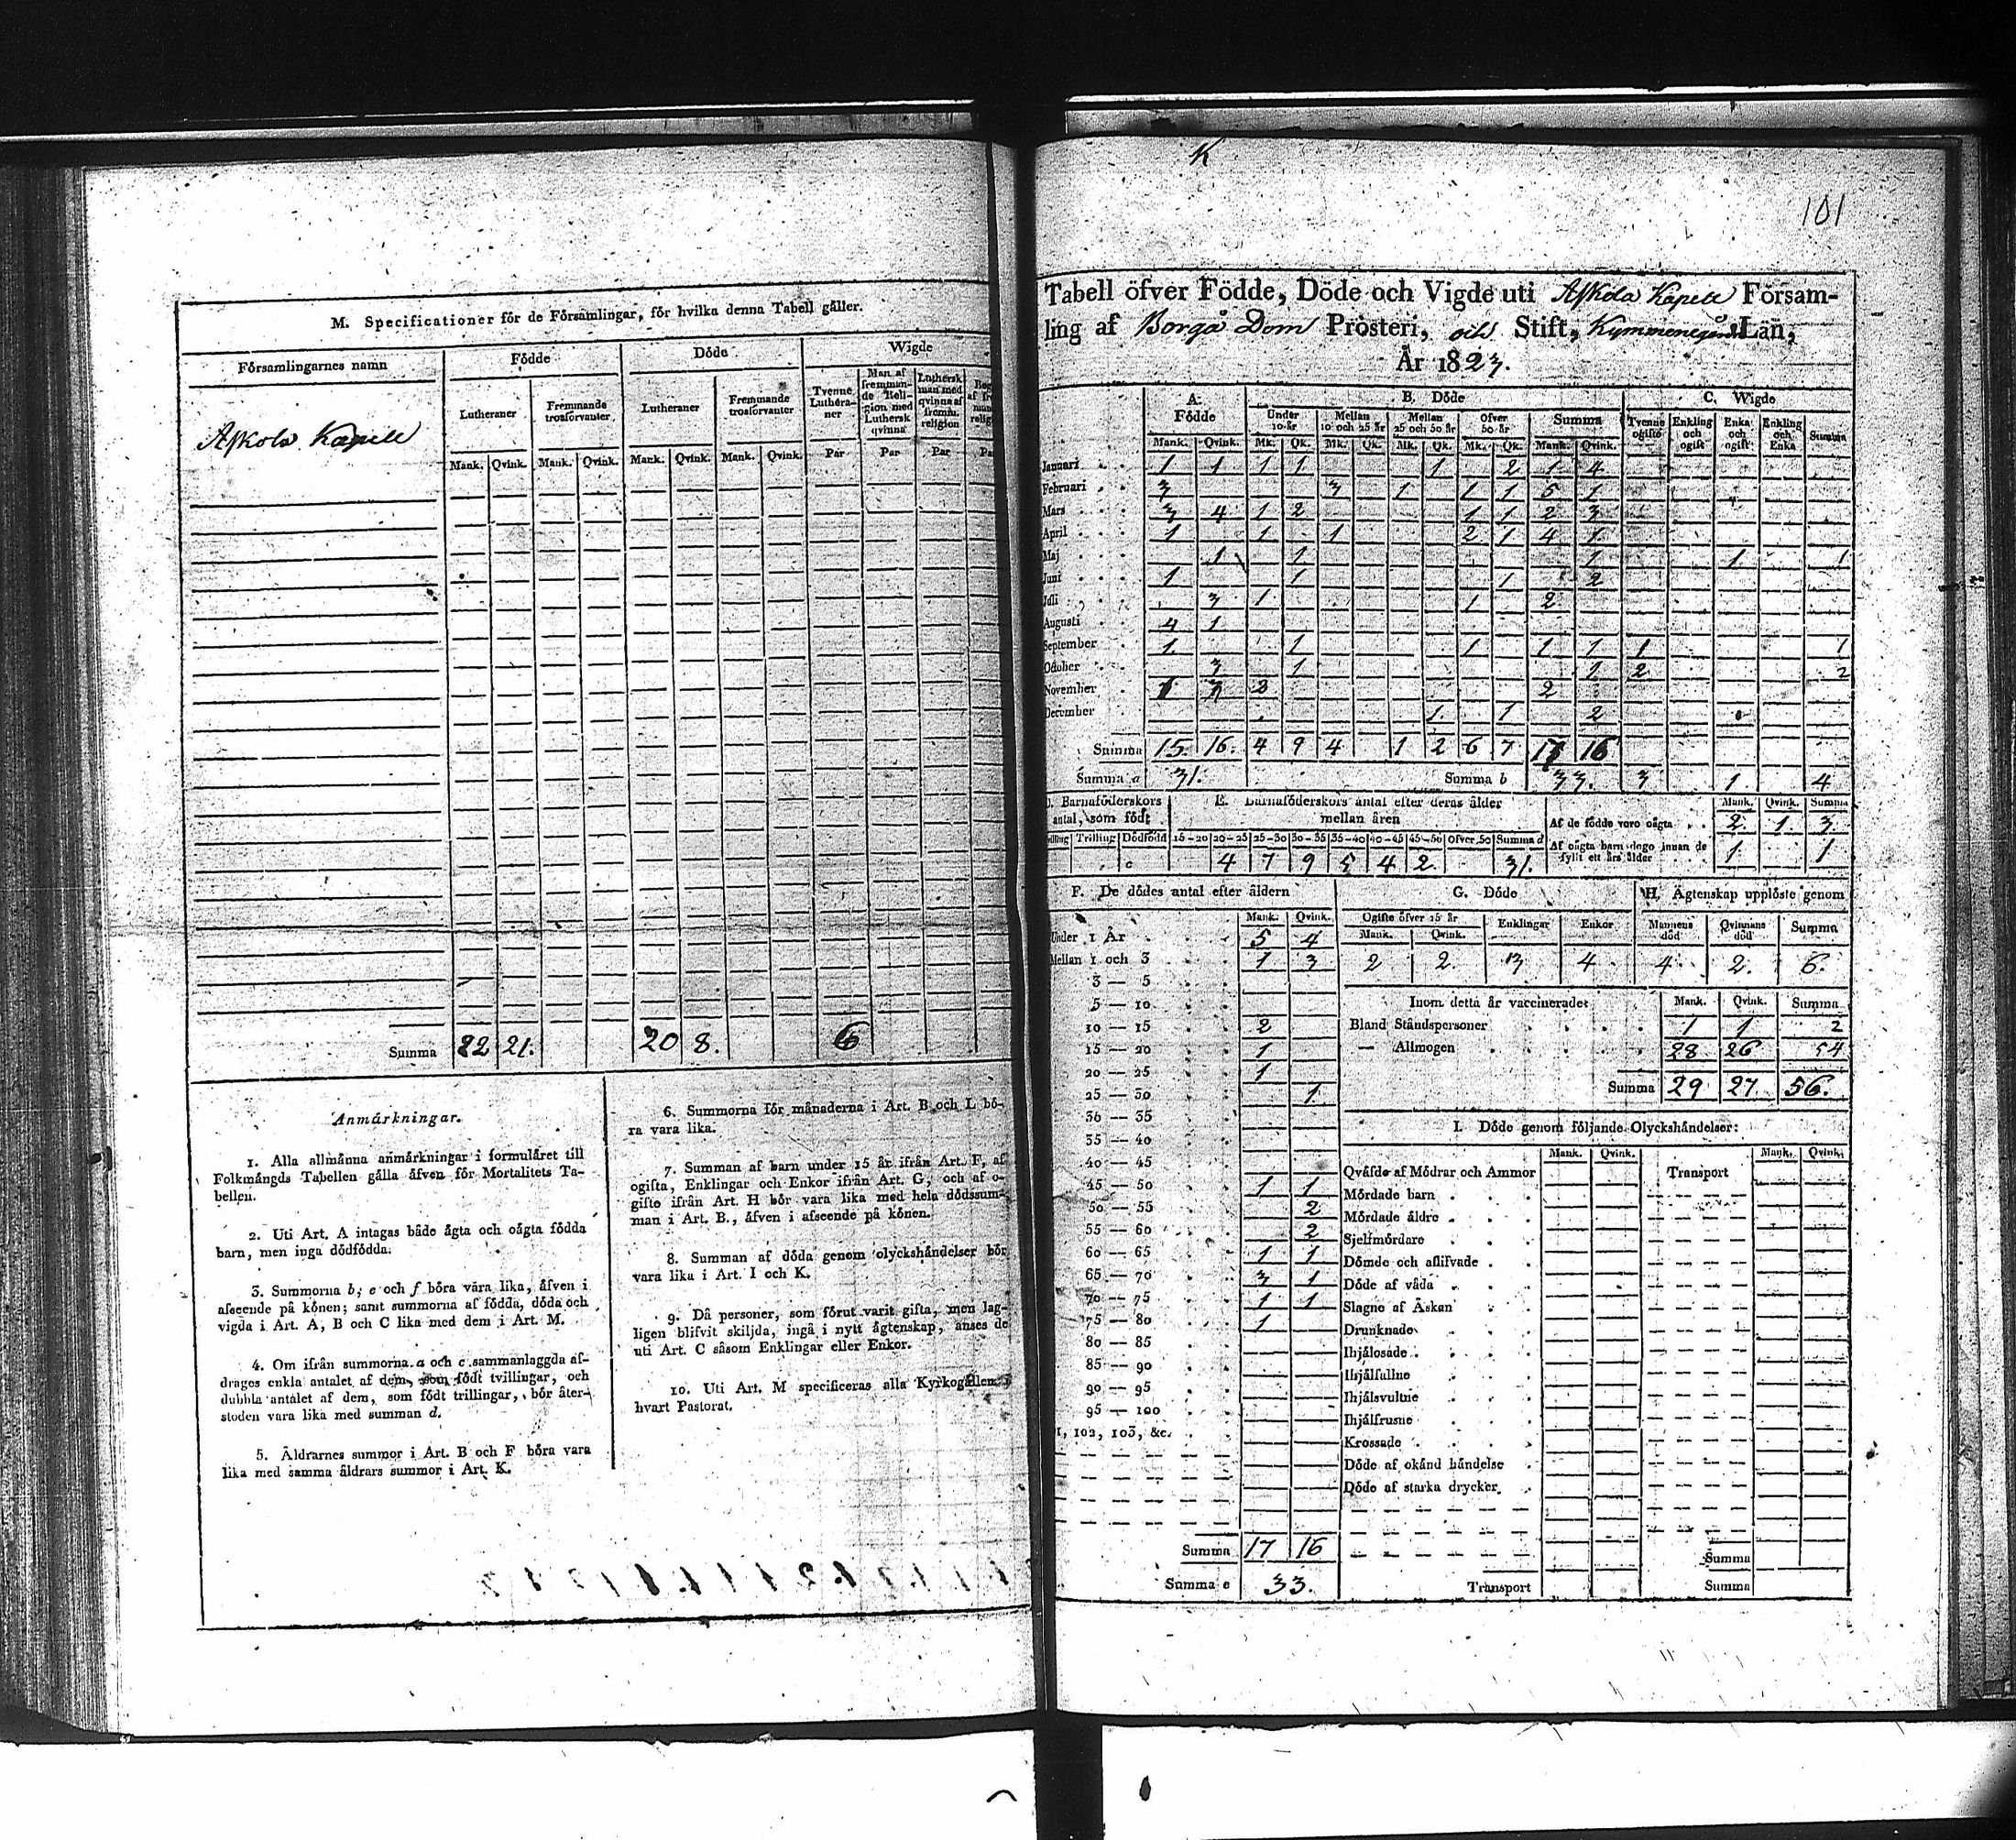 M. Specificationer för de Församlingar, för hvilka denna Tabell gäller.
Församlingarnes namn
Födde
Döde
Wigde
Lutheraner
Fremmande trosförvanter
Lutheraner
Fremmande trosförvanter
Tvenne Luthera-ner
Man af fremman-de Reli-gion med Luthersk qvinna
Luthersk man med qvinna af fremm. religion
Mank. Qvink. Mank. Qvink. Mank. Qvink. Mank. Qvink. Par Par Par
Askola Kapell
Summa 22 21. 20 8. 6
Anmärkningar.
1. Alla allmänna anmärkningar i formuläret till
Folkmängds Tabellen gälla äfven för Mortalitets Ta-
bellen.
2. Uti Art. A intagas både ägta och oägta födda
barn, men inga dödfödda.
3. Summorna b, e och f böra vara lika, äfven i
afseende på könen; samt summorna af födda, döda och
vigda i Art. A, B och C lika med dem i Art. M.
4. Om ifrån summorna a och c sammanlaggda af-
drages enkla antalet af dem, som födt tvillingar, och
dubbla antalet af dem, som födt trillingar, bör åter-
stoden vara lika med summan d.
5. Äldrarnes summor i Art. B och F böra vara
lika med samma äldrars summor i Art. K.
6. Summorna för månaderna i Art. B och L bö-
ra vara lika.
7. Summan af barn under 15 år ifrån Art. F, af
ogifta, Enklingar och Enkor ifrån Art. G, och af o-
gifte ifrån Art. H bör vara lika med hela dödssum-
man i Art. B., äfven i afseende på könen.
8. Summan af döda genom olyckshändelser bör
vara lika i Art. I och K.
9. Då personer, som förut varit gifta, men lag-
ligen blifvit skiljda, ingå i nytt ägtenskap, anses de
uti Art. C såsom Enklingar eller Enkor.
10. Uti Art. M specificeras alla Kyrkogällen i
hvart Pastorat.
K
101
Tabell öfver Födde, Döde och Vigde uti Askola Kapell Försam-
ling af Borgå Dom Prosteri, och Stift, Kymmenegårds Län,
År 1823.
A. Födde
B. Döde
C. Wigde
Under 10 år
Mellan 10 och 25 år
Mellan 25 och 50 år
Öfver 50 år
Summa
Tvenne ogifte
Enkling och ogift
Enka och ogift
Enkling och Enka
Summa
Mank. Qvink. Mk. Qk. Mk. Qk. Mk. Qk. Mk. Qk. Mank. Qvink.
Januari 1 1 1 1 1 2 1 4
Februari 3 3 1 1 1 5 1
Mars 3 4 1 2 1 1 2 3
April 1 1 1 2 1 4 1
Maj 1 1 1 1 1
Juni 1 1 1 2
Juli 3 1 1 2
Augusti 4 1
September 1 1 1 1 1 1 1
October 3 1 1 2 2
November 1 3 2 2
December 1 1 2
Summa 15. 16. 4 9 4 1 2 6 7 17 16
Summa a 31. Summa b 33. 3 1. 4
D. Barnaföderskors antal, som födt
E. Barnaföderskors antal efter deras ålder mellan åren
Trilling Dödfödd 15—20 20—25 25—30 30—35 35—40 40—45 45—50 Öfver 50 Summa d
c 4 7 9 5 4 2 31.
Mank. Qvink. Summa
Af de födde voro oägta 2 1 3
Af oägta barn dogo innan de fyllt ett års ålder 1 1
F. De dödes antal efter åldern
Mank. Qvink.
Under 1 År 5 4
Mellan 1 och 3 1 3
3 — 5
5 — 10
10 — 15 2
15 — 20 1
20 — 25 1
25 — 30 1
30 — 35
35 — 40
40 — 45
45 — 50 1 1
50 — 55 2
55 — 60 2
60 — 65 1 1
65 — 70 3 1
70 — 75 1 1
75 — 80 1
80 — 85
85 — 90
90 — 95
95 — 100
102, 103, &c.
Summa 17 16
Summa e 33.
G. Döde
Ogifte öfver 15 år
Mank. Qvink. Enklingar Enkor
2 2 3 4
H. Ägtenskap upplöste genom
Mannens död Qvinnans död Summa
4 2. 6.
Inom detta år vaccinerade: Mank. Qvink. Summa
Bland Ståndspersoner 1 1 2
— Allmogen 28 26 54
Summa 29 27 56.
I. Döde genom följande Olyckshändelser:
Mank. Qvink. Transport Mank. Qvink.
Qväfde af Mödrar och Ammor
Mördade barn
Mördade äldre
Sjelfmördare
Dömde och aflifvade
Döde af våda
Slagne af Åskan
Drunknade
Ihjälosade
Ihjälfallne
Ihjälsvultne
Ihjälfrusne
Krossade
Döde af okänd händelse
Döde af starka drycker
Summa
Transport Summa